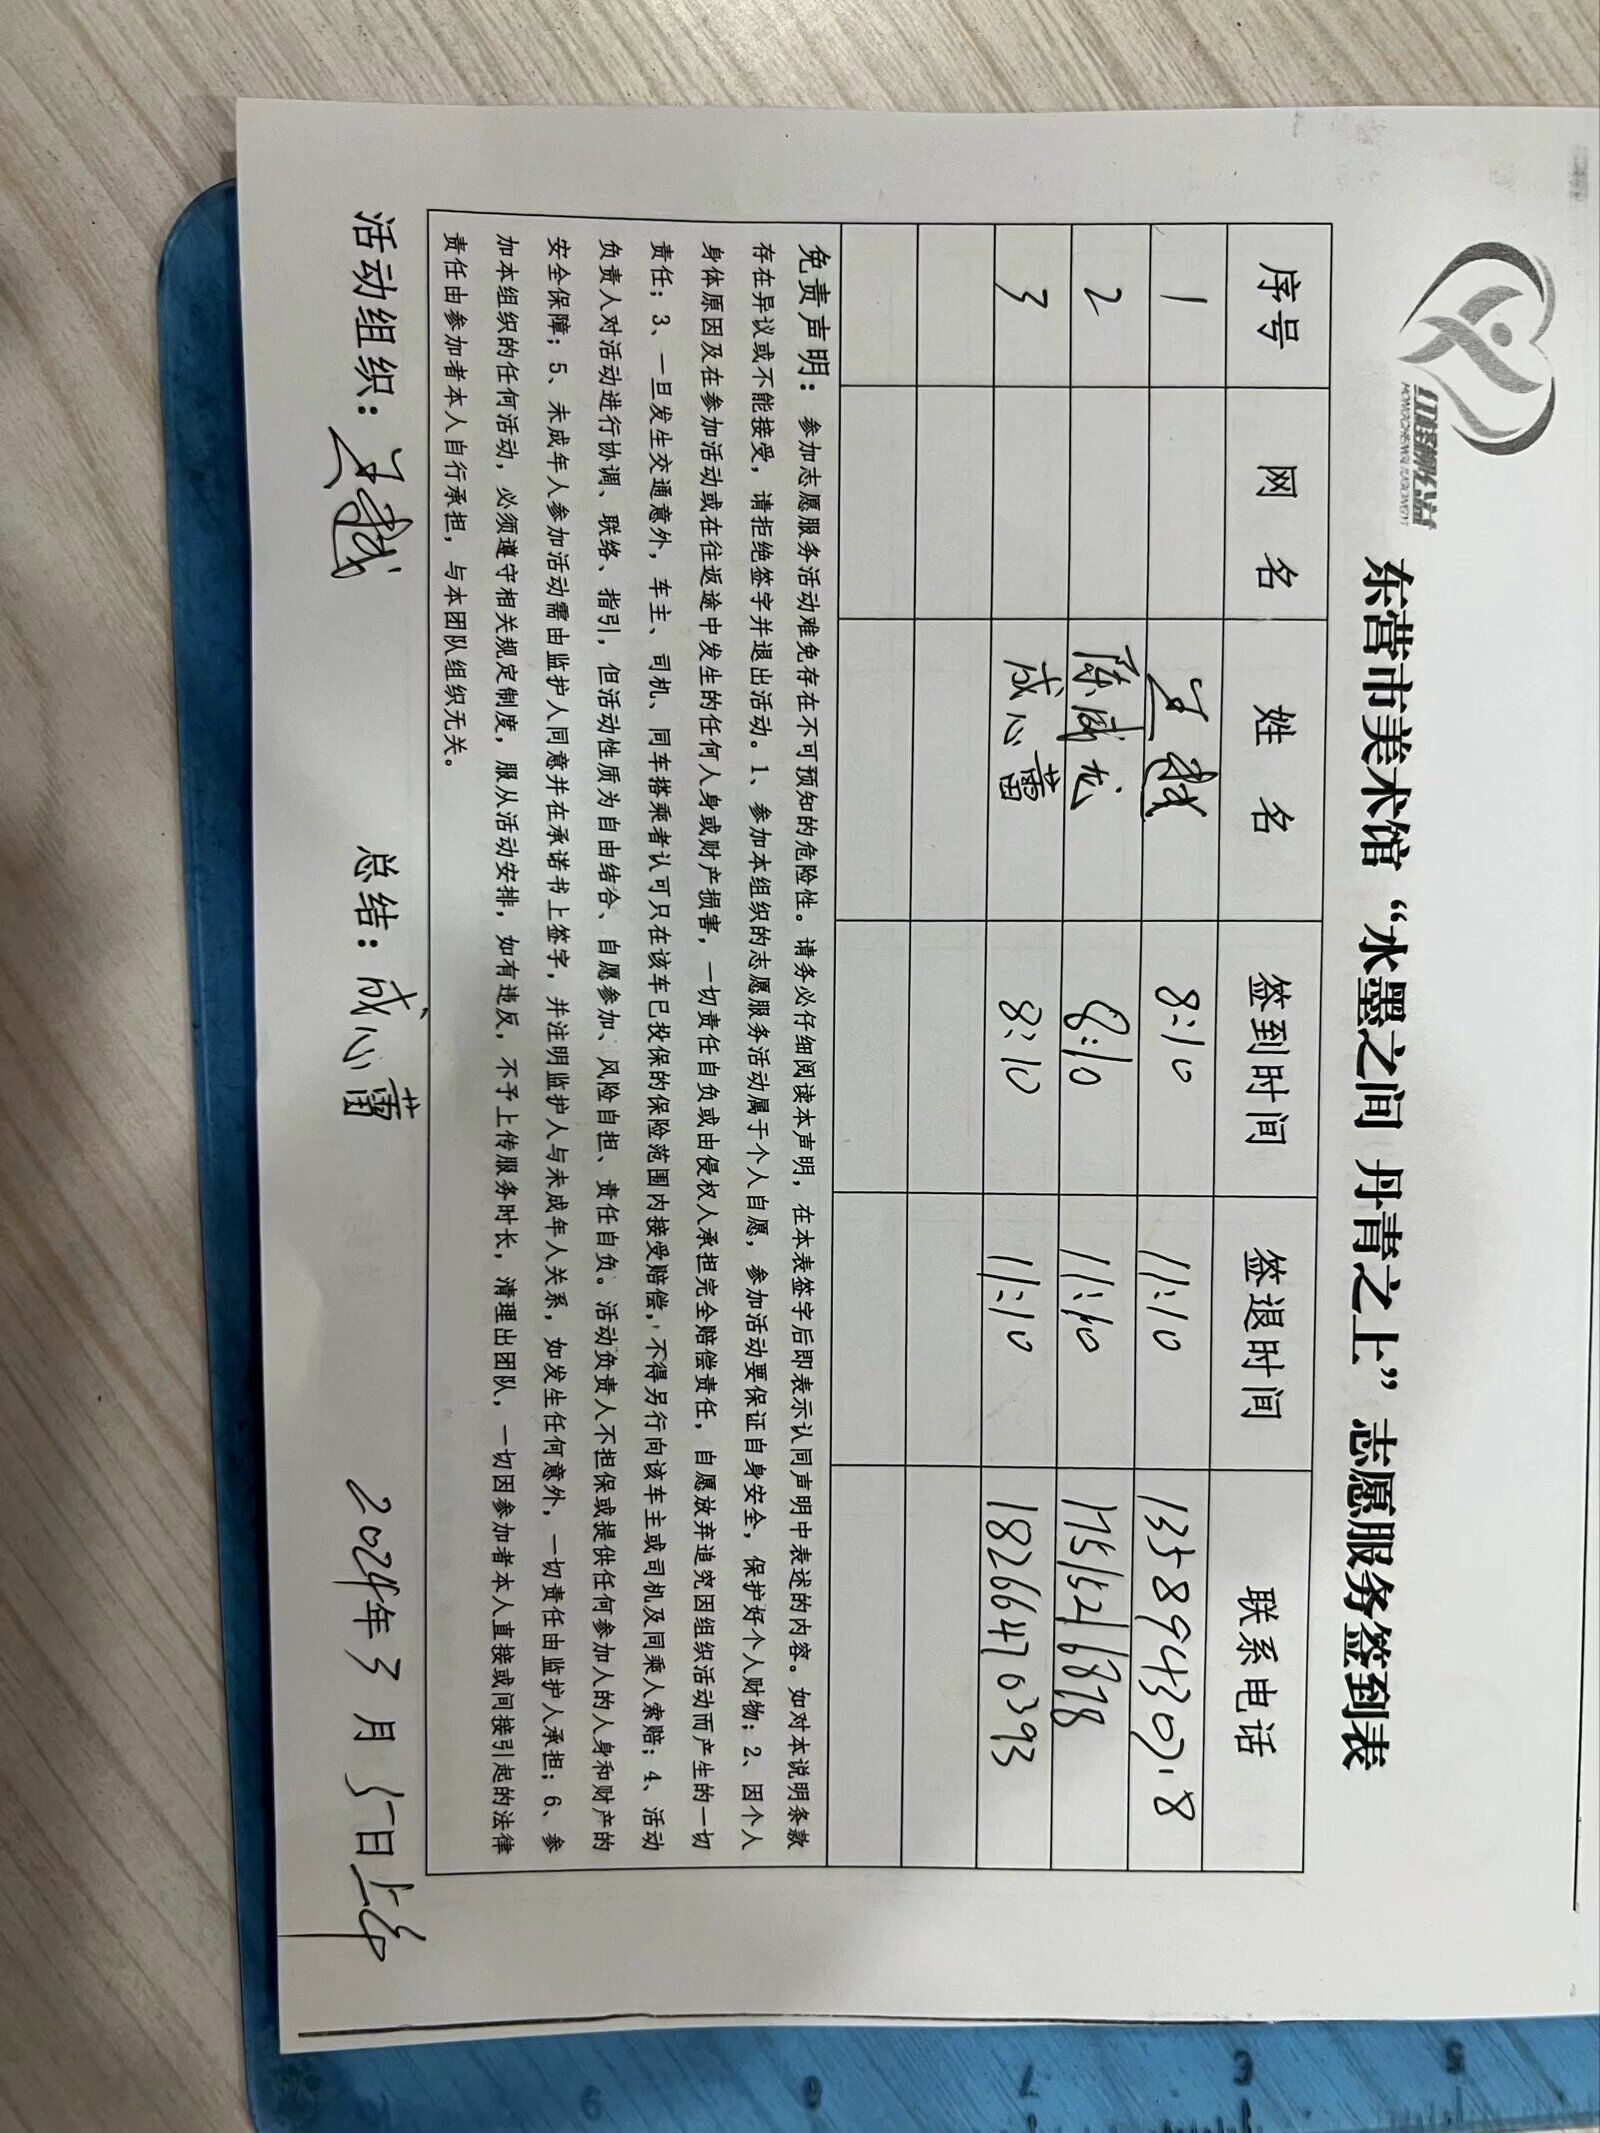 东营市美术馆“水墨之间 丹青之上”志愿服务签到表
序号 网 名 姓 名 签到时间 签退时间 联系电话
1 8:10 11:10
2 陈威龙 8:10 11:10 17515216878
3 成心蕾 8:10 11:10 18266470393
免责声明： 参加志愿服务活动难免存在不可预知的危险性。请务必仔细阅读本声明，在本表签字后即表示认同声明中表述的内容。如对本说明条款
存在异议或不能接受，请拒绝签字并退出活动。1、参加本组织的志愿服务活动属于个人自愿，参加活动要保证自身安全，保护好个人财物；2、因个人
身体原因及在参加活动或在往返途中发生的任何人身或财产损害，一切责任自负或由侵权人承担完全赔偿责任，自愿放弃追究因组织活动而产生的一切
责任；3、一旦发生交通意外，车主、司机、同车搭乘者认可只在该车已投保的保险范围内接受赔偿，不得另行向该车主或司机及同乘人索赔；4、活动
负责人对活动进行协调、联络、指引，但活动性质为自由结合、自愿参加、风险自担、责任自负。活动负责人不担保或提供任何参加人的人身和财产的
安全保障；5、未成年人参加活动需由监护人同意并在承诺书上签字，并注明监护人与未成年人关系，如发生任何意外，一切责任由监护人承担；6、参
加本组织的任何活动，必须遵守相关规定制度，服从活动安排，如有违反，不予上传服务时长，清理出团队，一切因参加者本人直接或间接引起的法律
责任由参加者本人自行承担，与本团队组织无关。
活动组织： 总结：成心蕾 2024年3月5日上午